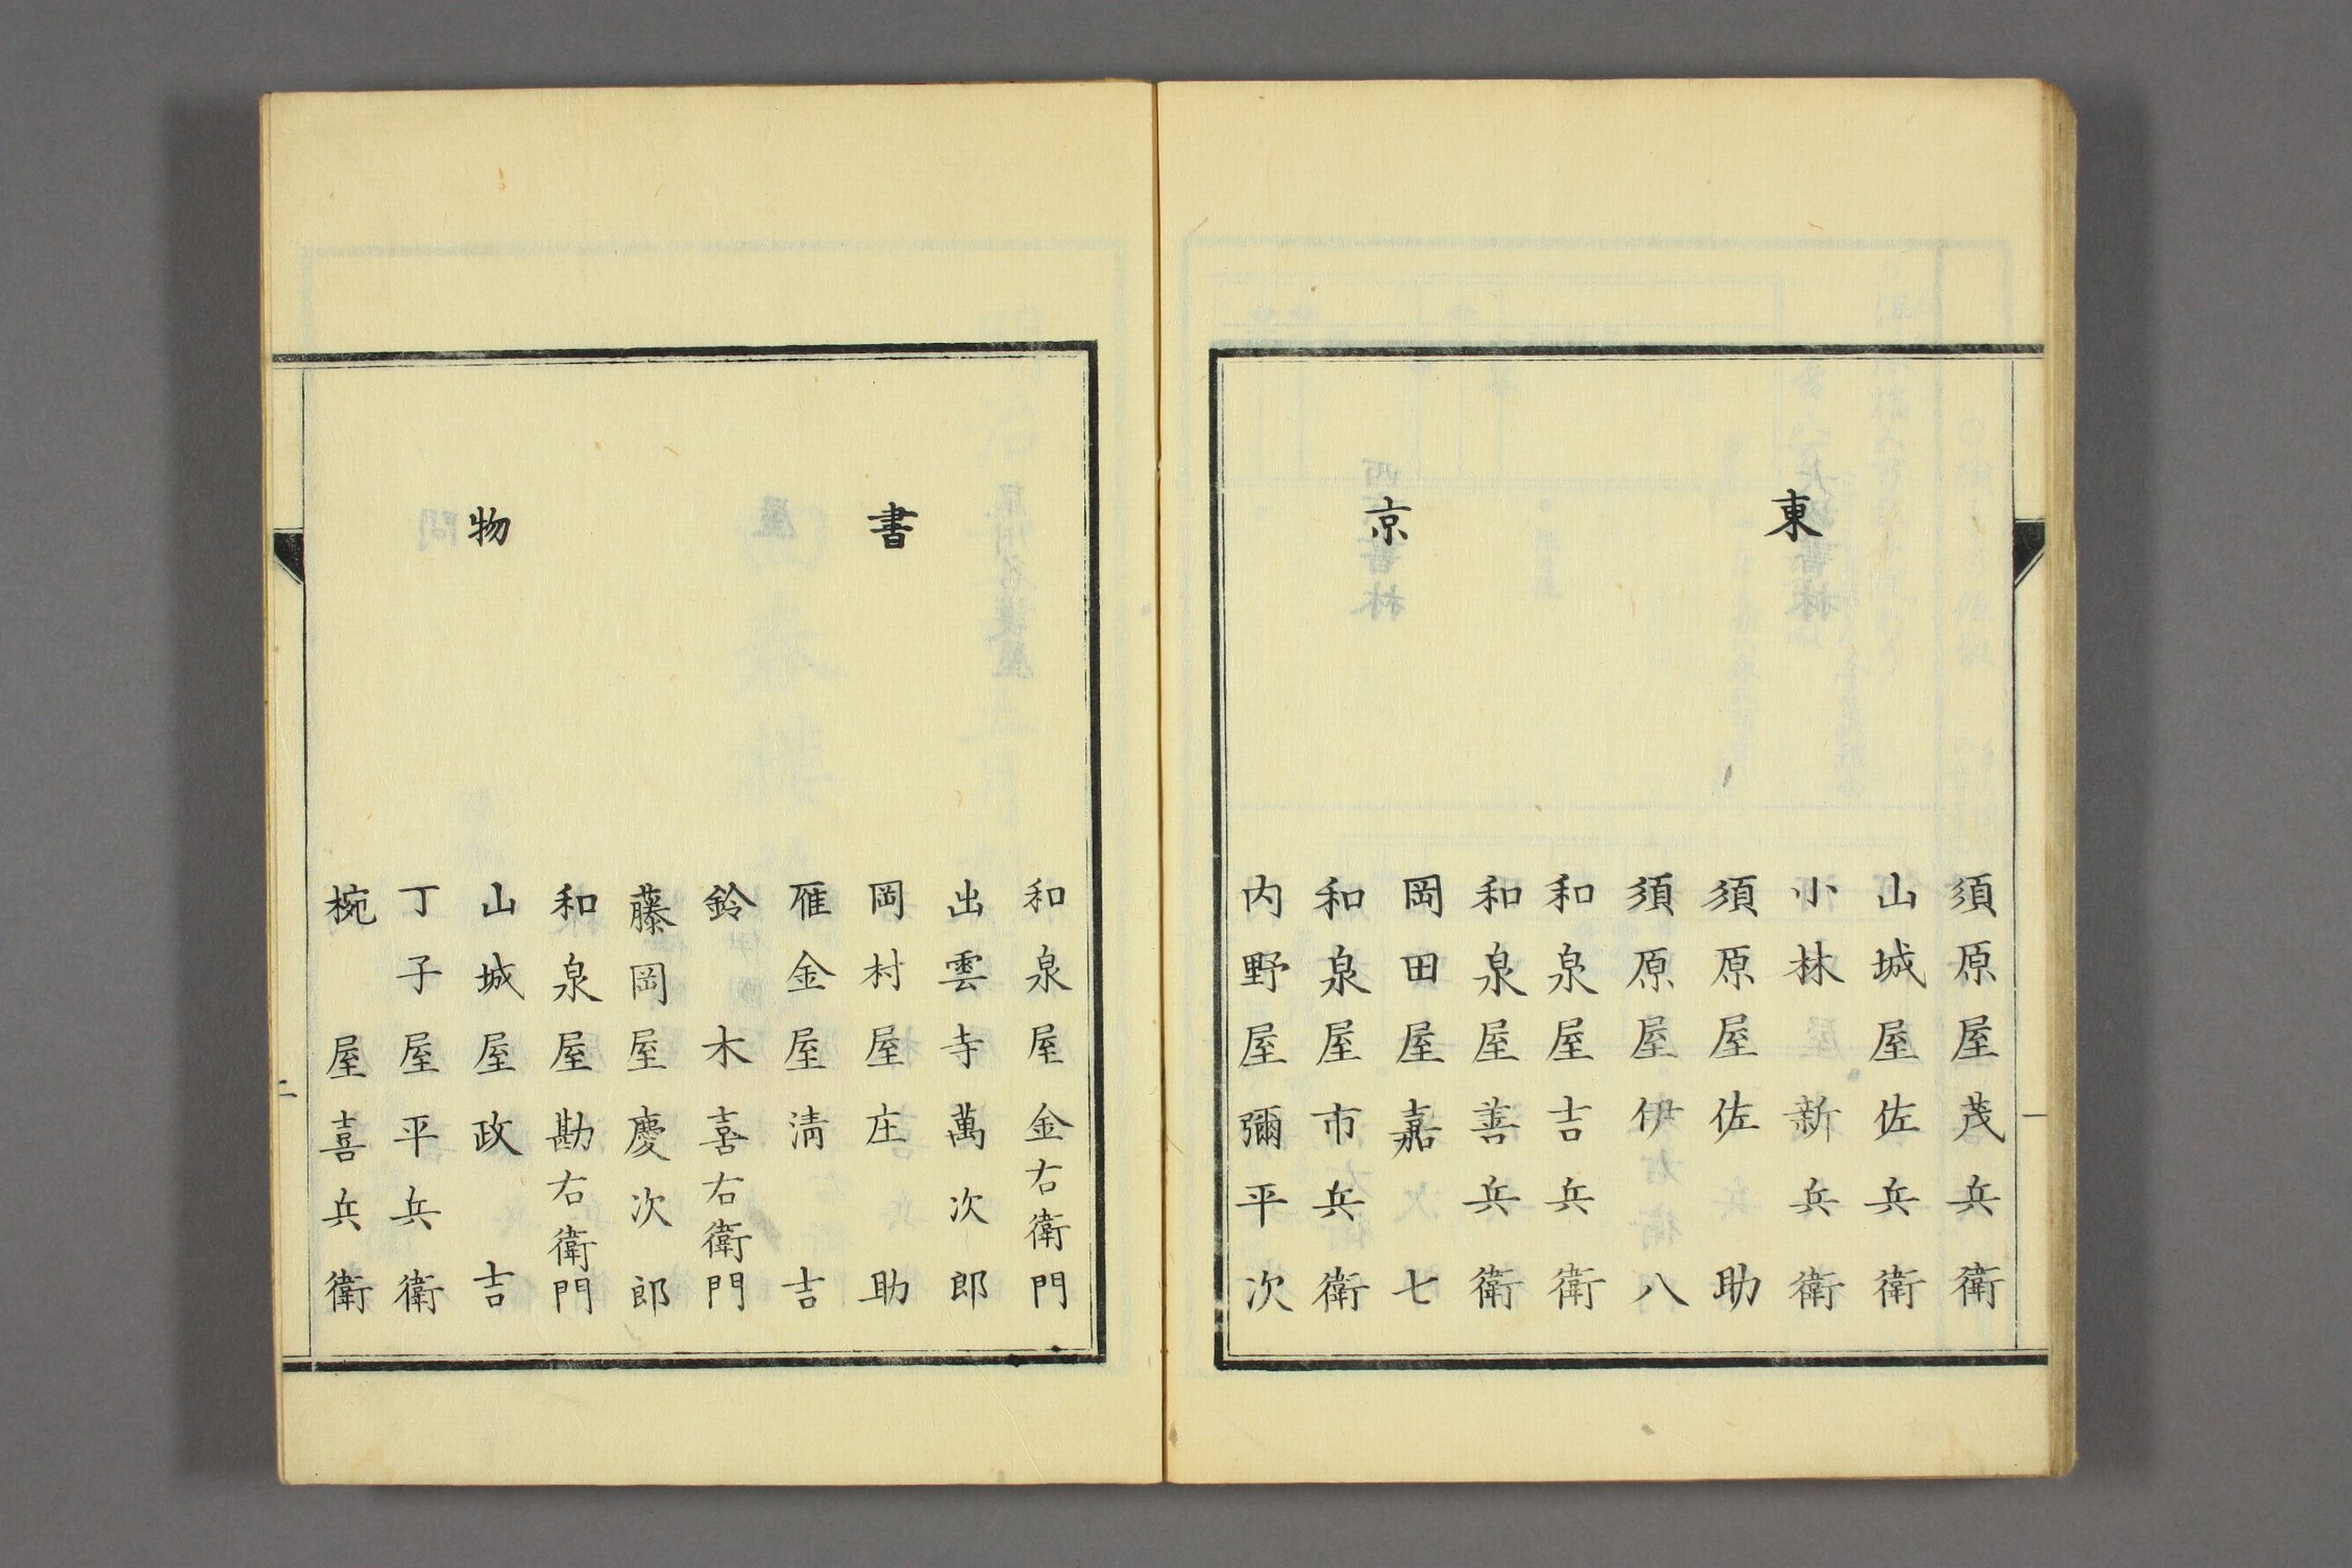 東京
須原屋茂兵衛
山城屋佐兵衛
小林新兵衛
須原屋佐助
須原屋伊八
和泉屋吉兵衛
和泉屋善兵衛
岡田屋嘉七
和泉屋市兵衛
内野屋彌平次
一
書物
和泉屋金右衛門
出雲寺萬次郎
岡村屋庄助
雁金屋清吉
鈴木喜右衛門
藤岡屋慶次郎
和泉屋勘右衛門
山城屋政吉
丁子屋平兵衛
椀屋喜兵衛
二